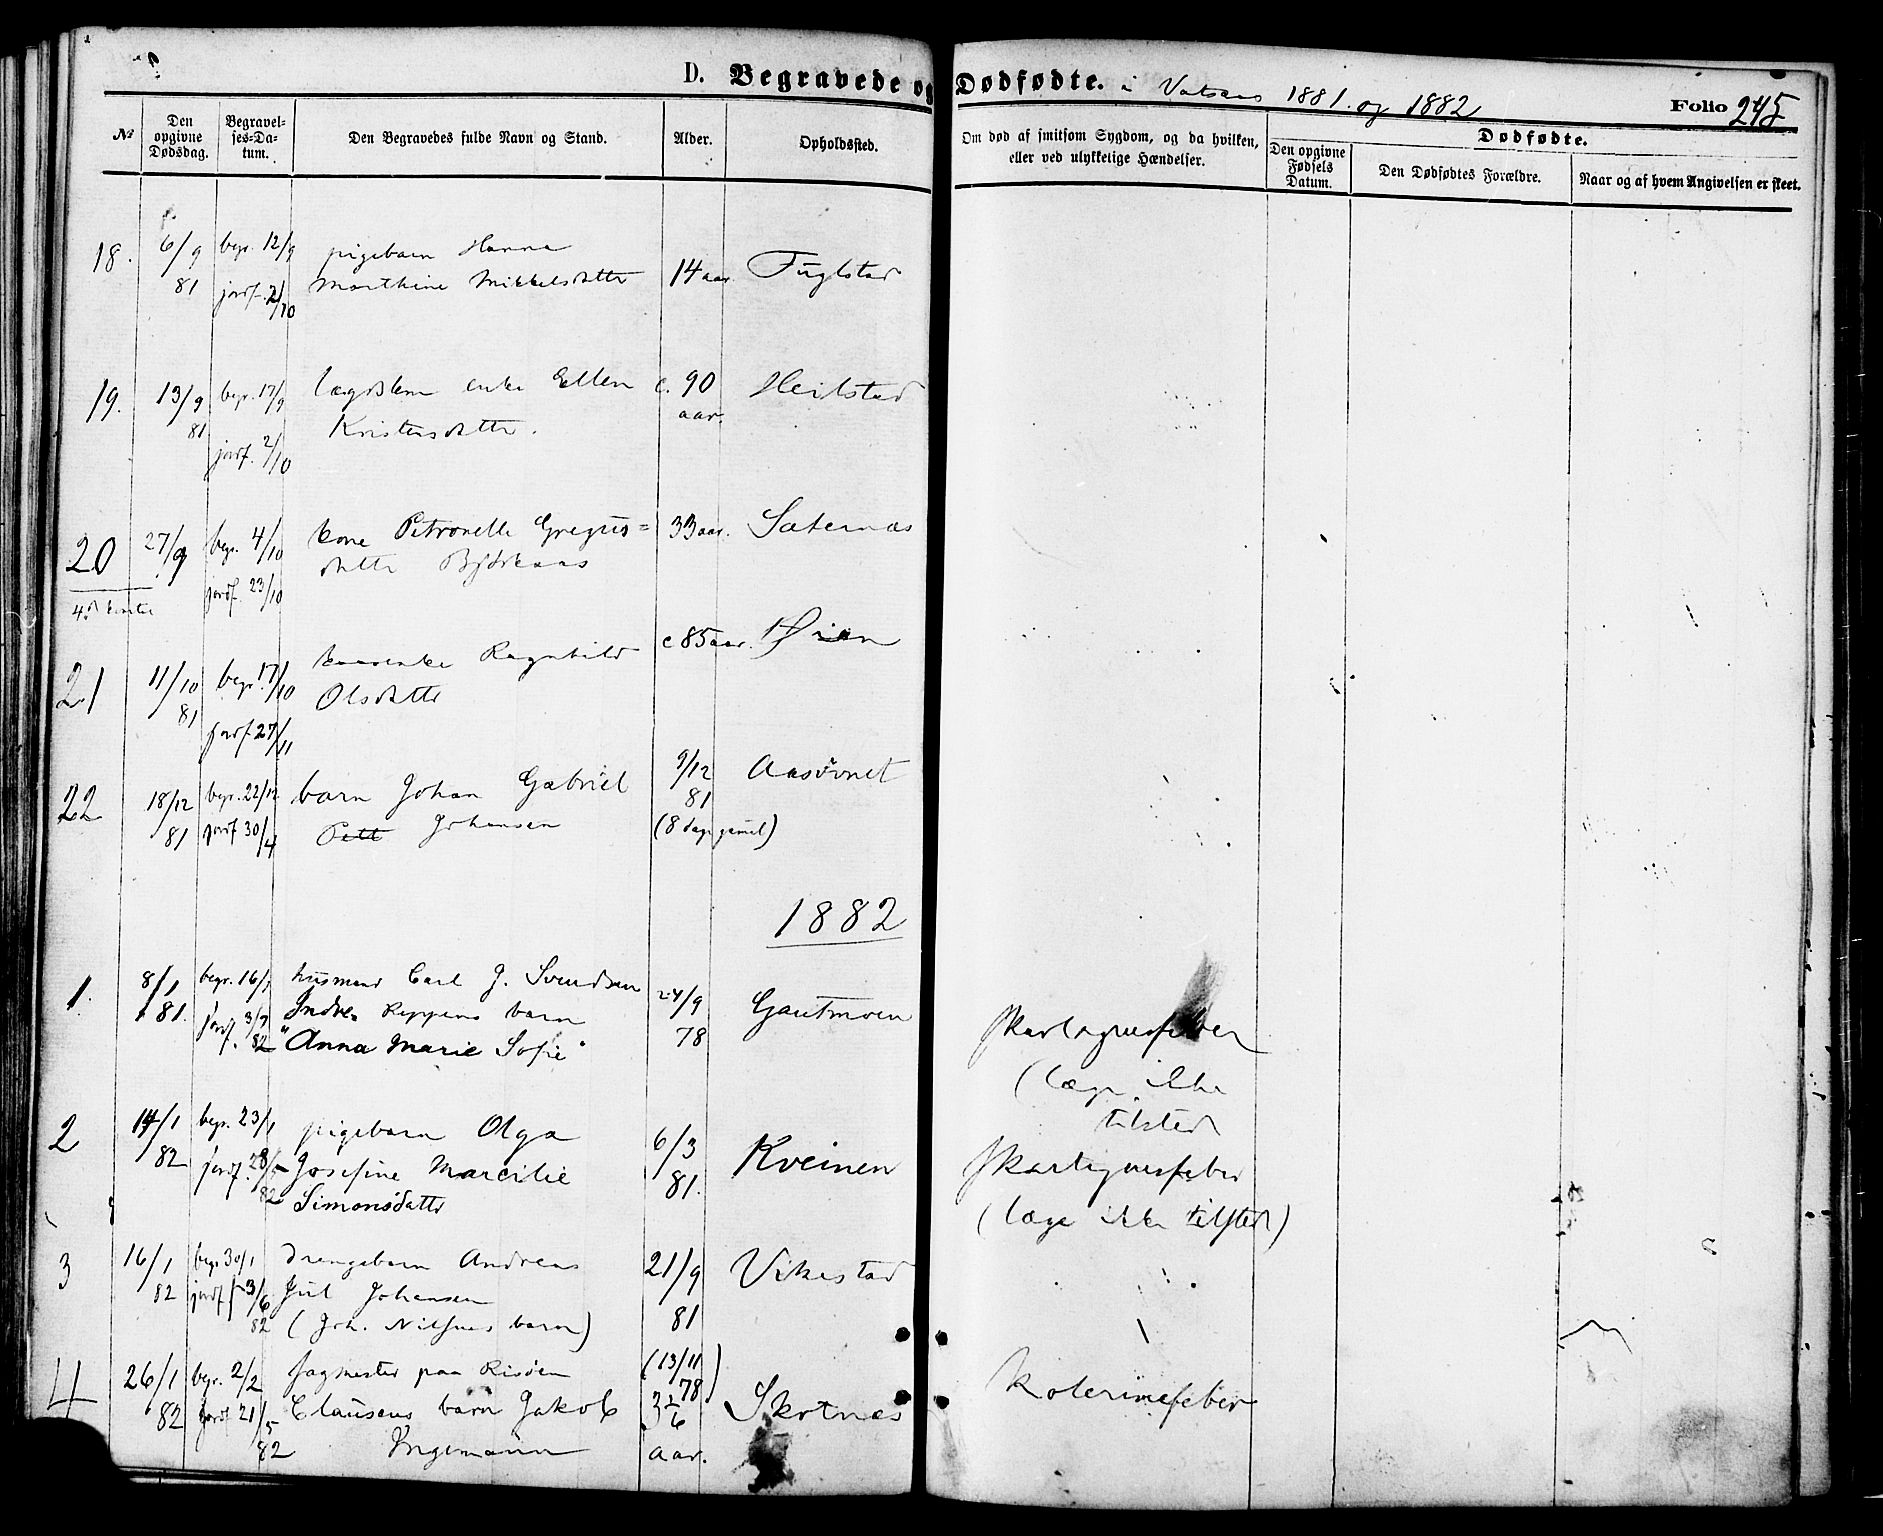 D. Begravede og Dødfødte. i Vatsaas 1881 og 1882 Folio 245
No Den opgivne Dødsdag. Begravelses-Datum. Den Begravedes fulde Navn og Stand. Alder. Opholdssted. Om død af smitsom Sygdom, og da hvilken, eller ved ulykkelige Hændelser. Dødfødte. Den opgivne Fødsels Datum. Den Dødfødtes Forældre. Naar og af hvem Angivelsen er skeet.
18. 6/9 begr. 12/9 pigebarn Hanna
81 jordf. 2/10 Marthine Mikkelsdatter 14 aar. Fuglstad
19. 13/9 begr. 17/9 lægdslem enke Ellen c. 90 Heilstad
81 jordf. 2/10 Kristensdatter. aar.
20 27/9 begr. 4/10 kone Petronelle Gregus= 33 aar. Sæternæs
jordf. 23/10 datter Bjørkaas
21 11/10 begr. 17/10 kaarenke Ragnhild c 85 aar. Øien
81 jordf. 27/11 Olsdatter
22 18/12 begr. 22/12 barn Johan Gabriel 9/12 Aasørnet
81 jordf 30/4 Pett Johansen 81
(8 dage gamel)
1882
1. 8/1 begr. 16/1 husmand Carl J. Svendsen 24/9 Gautmoen
81. jordf. 3/7 Indre Reppens barn 78 skarlagensfeber
82 "Anna Marie Sofie" (læge ikke
tilsted
2 14/1 begr. 23/1 pigebarn Olga 6/3 Kveinen
82 jordf. 28/5 Josefine Marcilie 81. skarlagensfeber
82 Simonsdatter (læge ikke tilsted)
3 16/1 begr 30/1 drengebarn Andreas 21/9 Vikestad
82 jordf 3/6 Jul Johansen
82 (Joh. Nilsens barn) 81
4 26/1 begr. 2/2 fogmester paa Risøen (13/11 78)
82 jordf 21/5 Clausens barn Jakob 3 2/6 Skotnes Kolerinefeber
82 Ingemann aar.